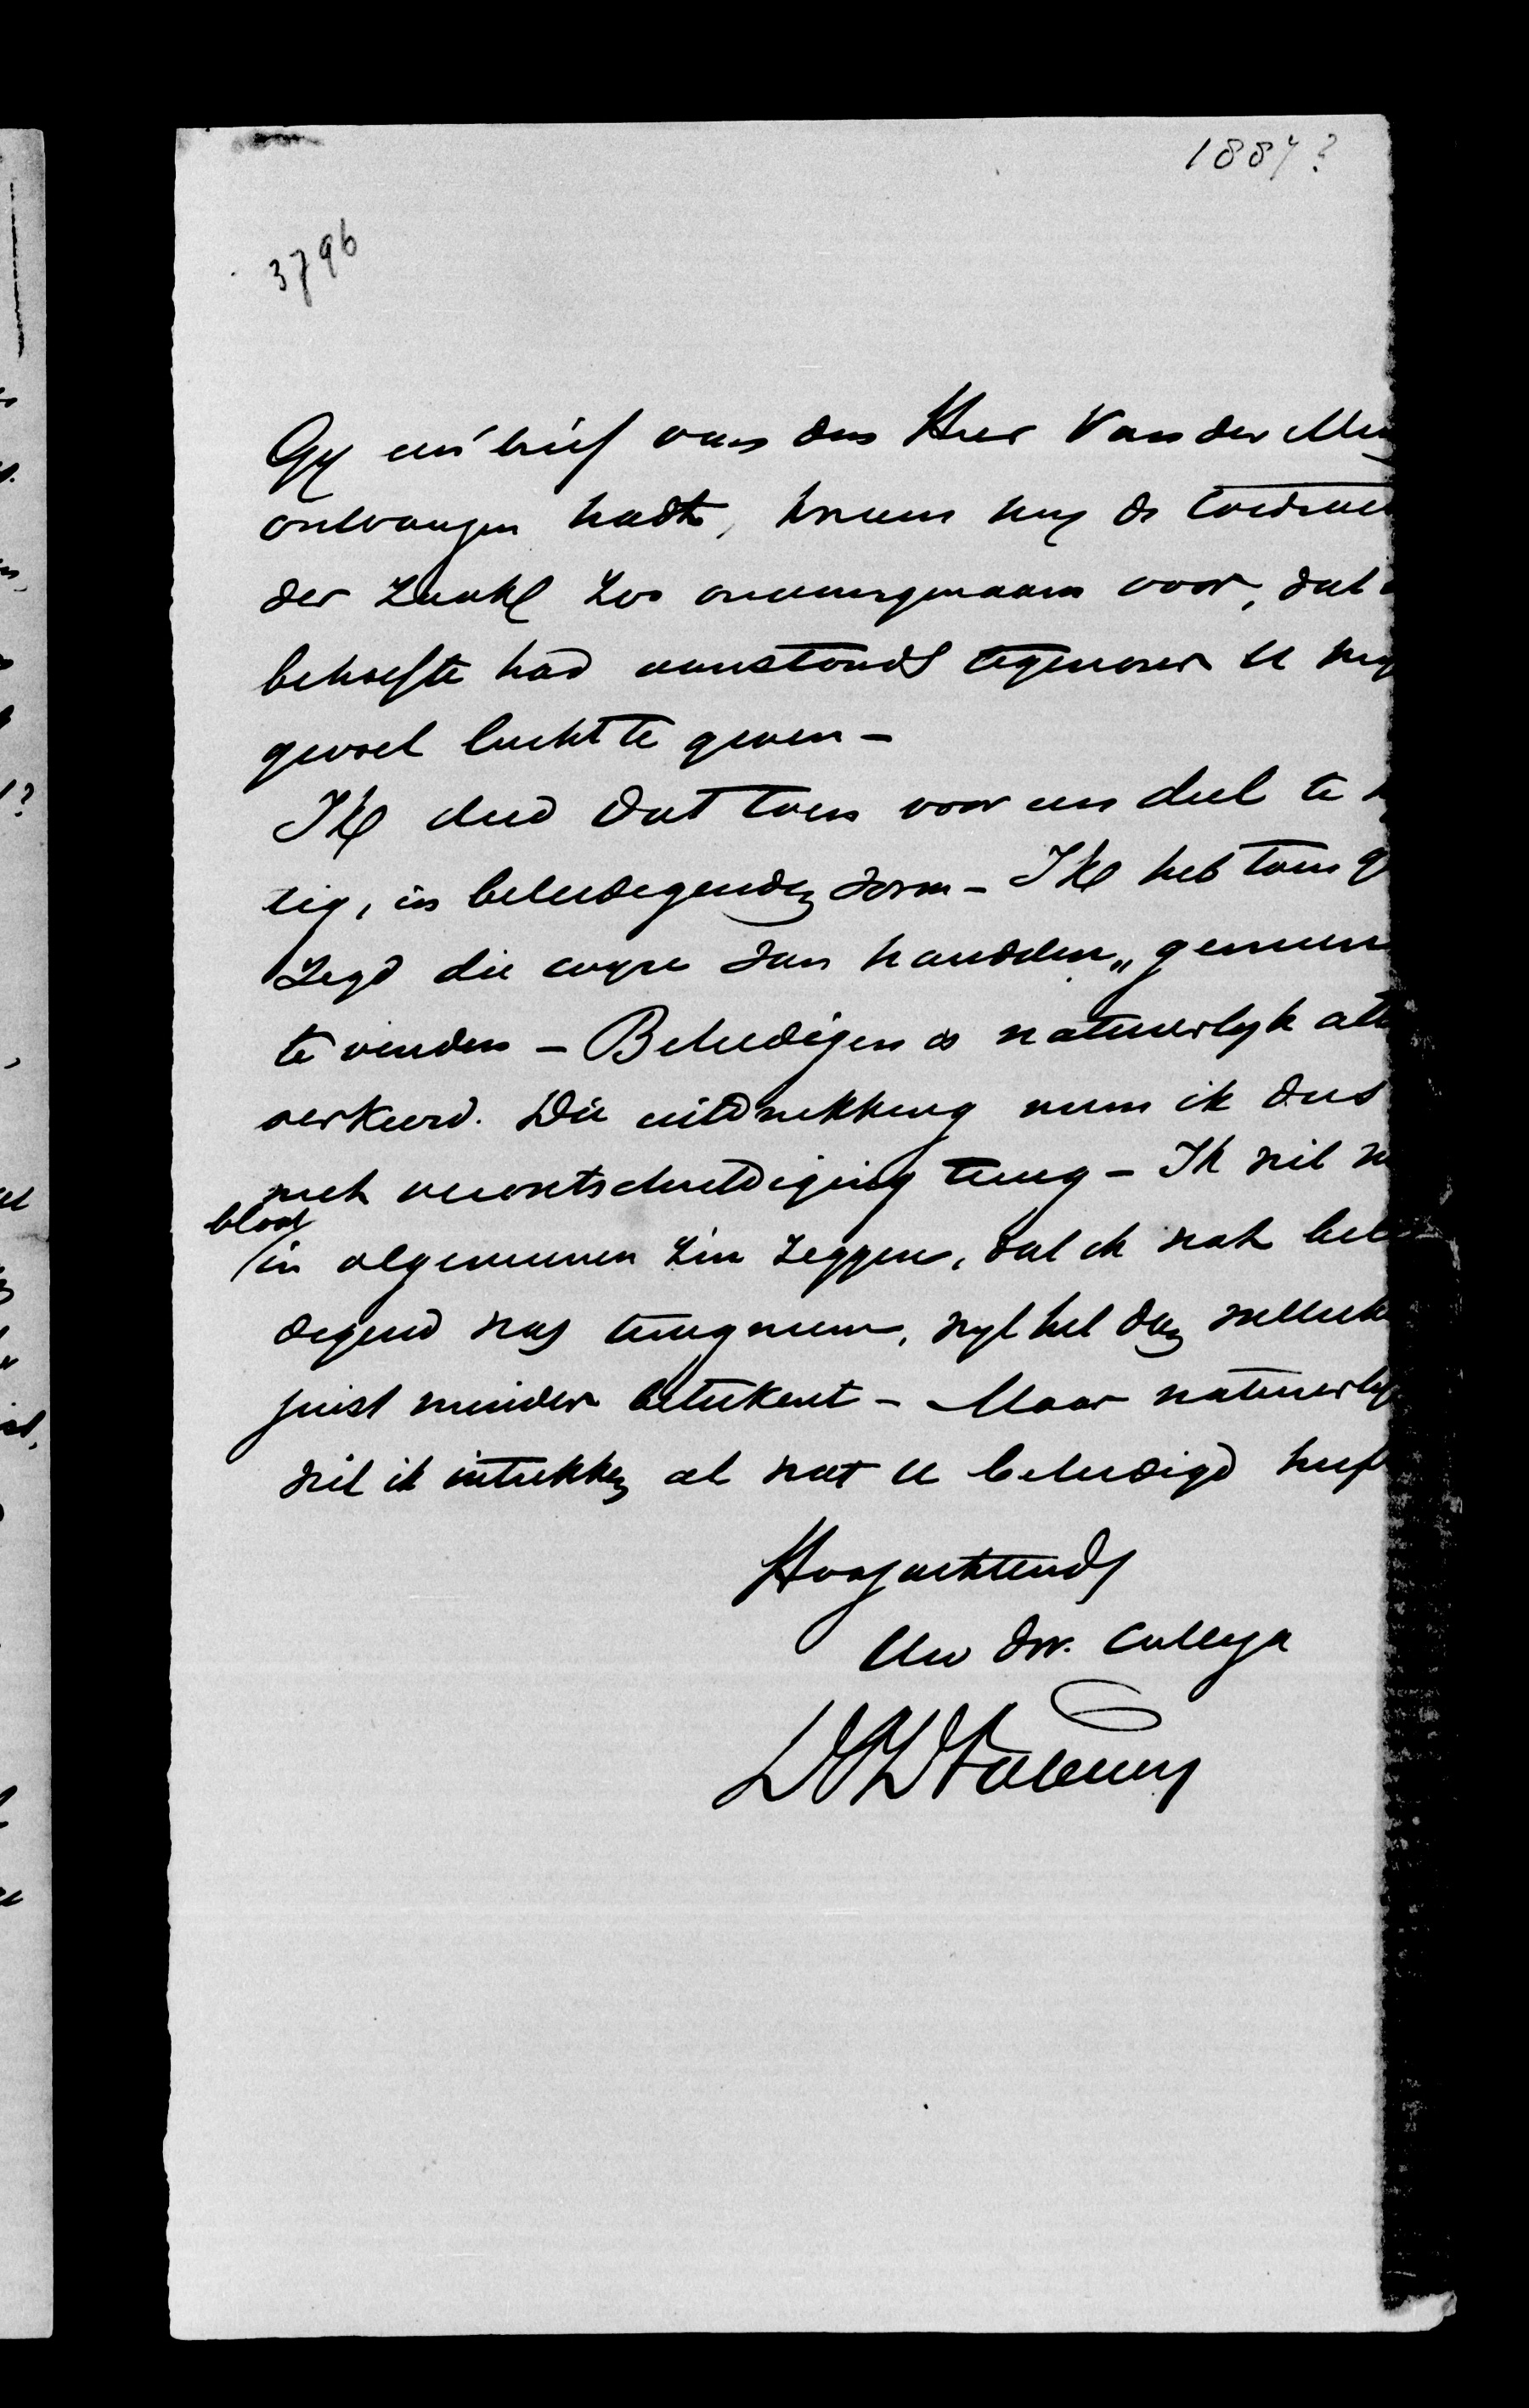 1887?
3796
Gy een brief van den Heer Van der
ontvangen hadt, kwam my de toedrach
der zaak zoo onaangenaam voor, dat
behoefte had aanstonds tegenover U myn
gevoel lucht te geven -
Ik deed dat toen voor een deel te
tig, in beleedigenden vorm - Ik heb toen ge
zegd die wyze van handelen „gemeen
te vinden - Beleedigen is natuurlyk alt
verkeerd. Die uitdrukking neem ik dus
met verontschuldiging terug - Ik wil n
bloot
in algemeenen zin zeggen, dat ik wat belee
digend was terugneem, wyl het dan wellicht
juist minder beteekent - Maar natuurlyk
wil ik intrekken al wat U beleedigd heef
Hoogachtend
Uw dw. Collega